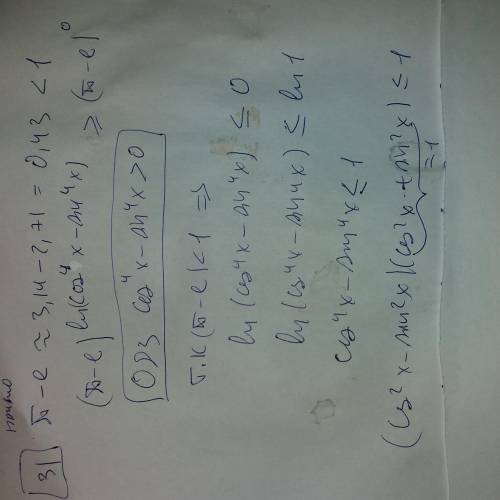 3)
π-e ≈ 3,14-2,71 = 0,43 < 1
(π-e)^ln(cos⁴x-sin⁴x) ≥ (π-e)⁰
ОДЗ cos⁴x-sin⁴x>0
т.к (π-e)<1 ⇒
ln(cos⁴x-sin⁴x) ≤ 0
ln(cos⁴x-sin⁴x) ≤ ln1
cos⁴x-sin⁴x ≤ 1
(cos²x-sin²x)(cos²x+sin²x) ≤ 1
=1